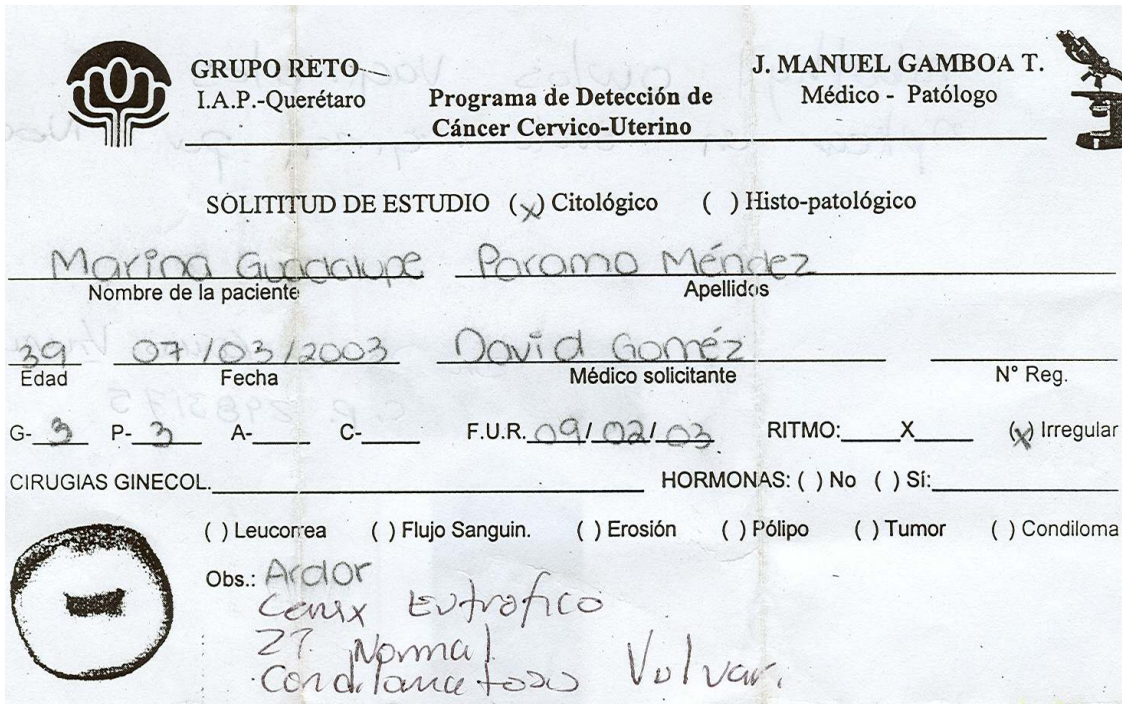 GRUPO RETO
I.A.P.-Querétaro
Programa de Detección de
Cáncer Cervico-Uterino
J. MANUEL GAMBOA T.
Médico - Patólogo
SOLITITUD DE ESTUDIO (x) Citológico ( ) Histo-patológico
Marina Guadalupe Paramo Méndez
Nombre de la paciente Apellidos
39 07/03/2003 David Goméz
Edad Fecha Médico solicitante N° Reg.
G- 3 P- 3 A- C- F.U.R. 09/02/03 RITMO: X (x) Irregular
CIRUGIAS GINECOL. HORMONAS: ( ) No ( ) Sí:
( ) Leucorrea ( ) Flujo Sanguin. ( ) Erosión ( ) Pólipo ( ) Tumor ( ) Condiloma
Obs.: Ardor
Cervix Eutrofico
Normal
Condilomatosis Vulvar.